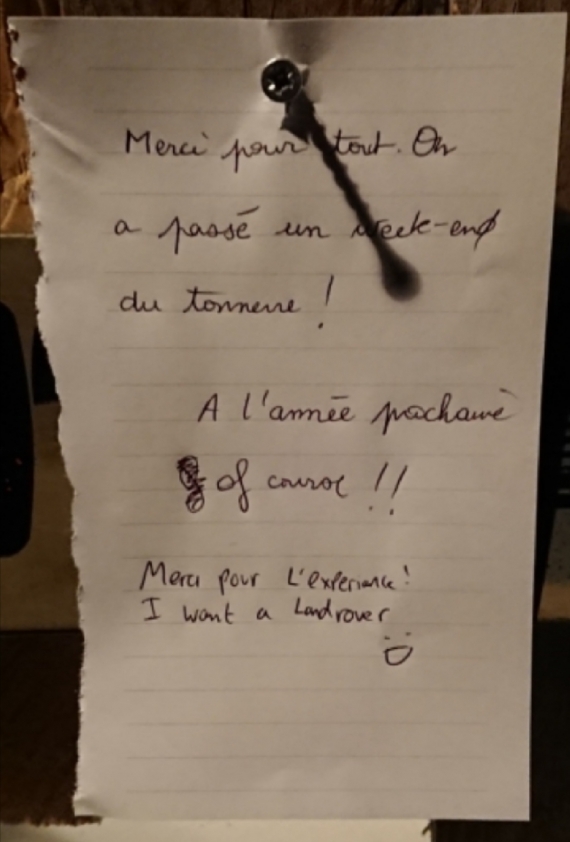 Merci pour tout. On
a passé un week-end
du tonnerre !
A l'année prochaine
of course !!
Merci pour L'experience!
I want a Landrover